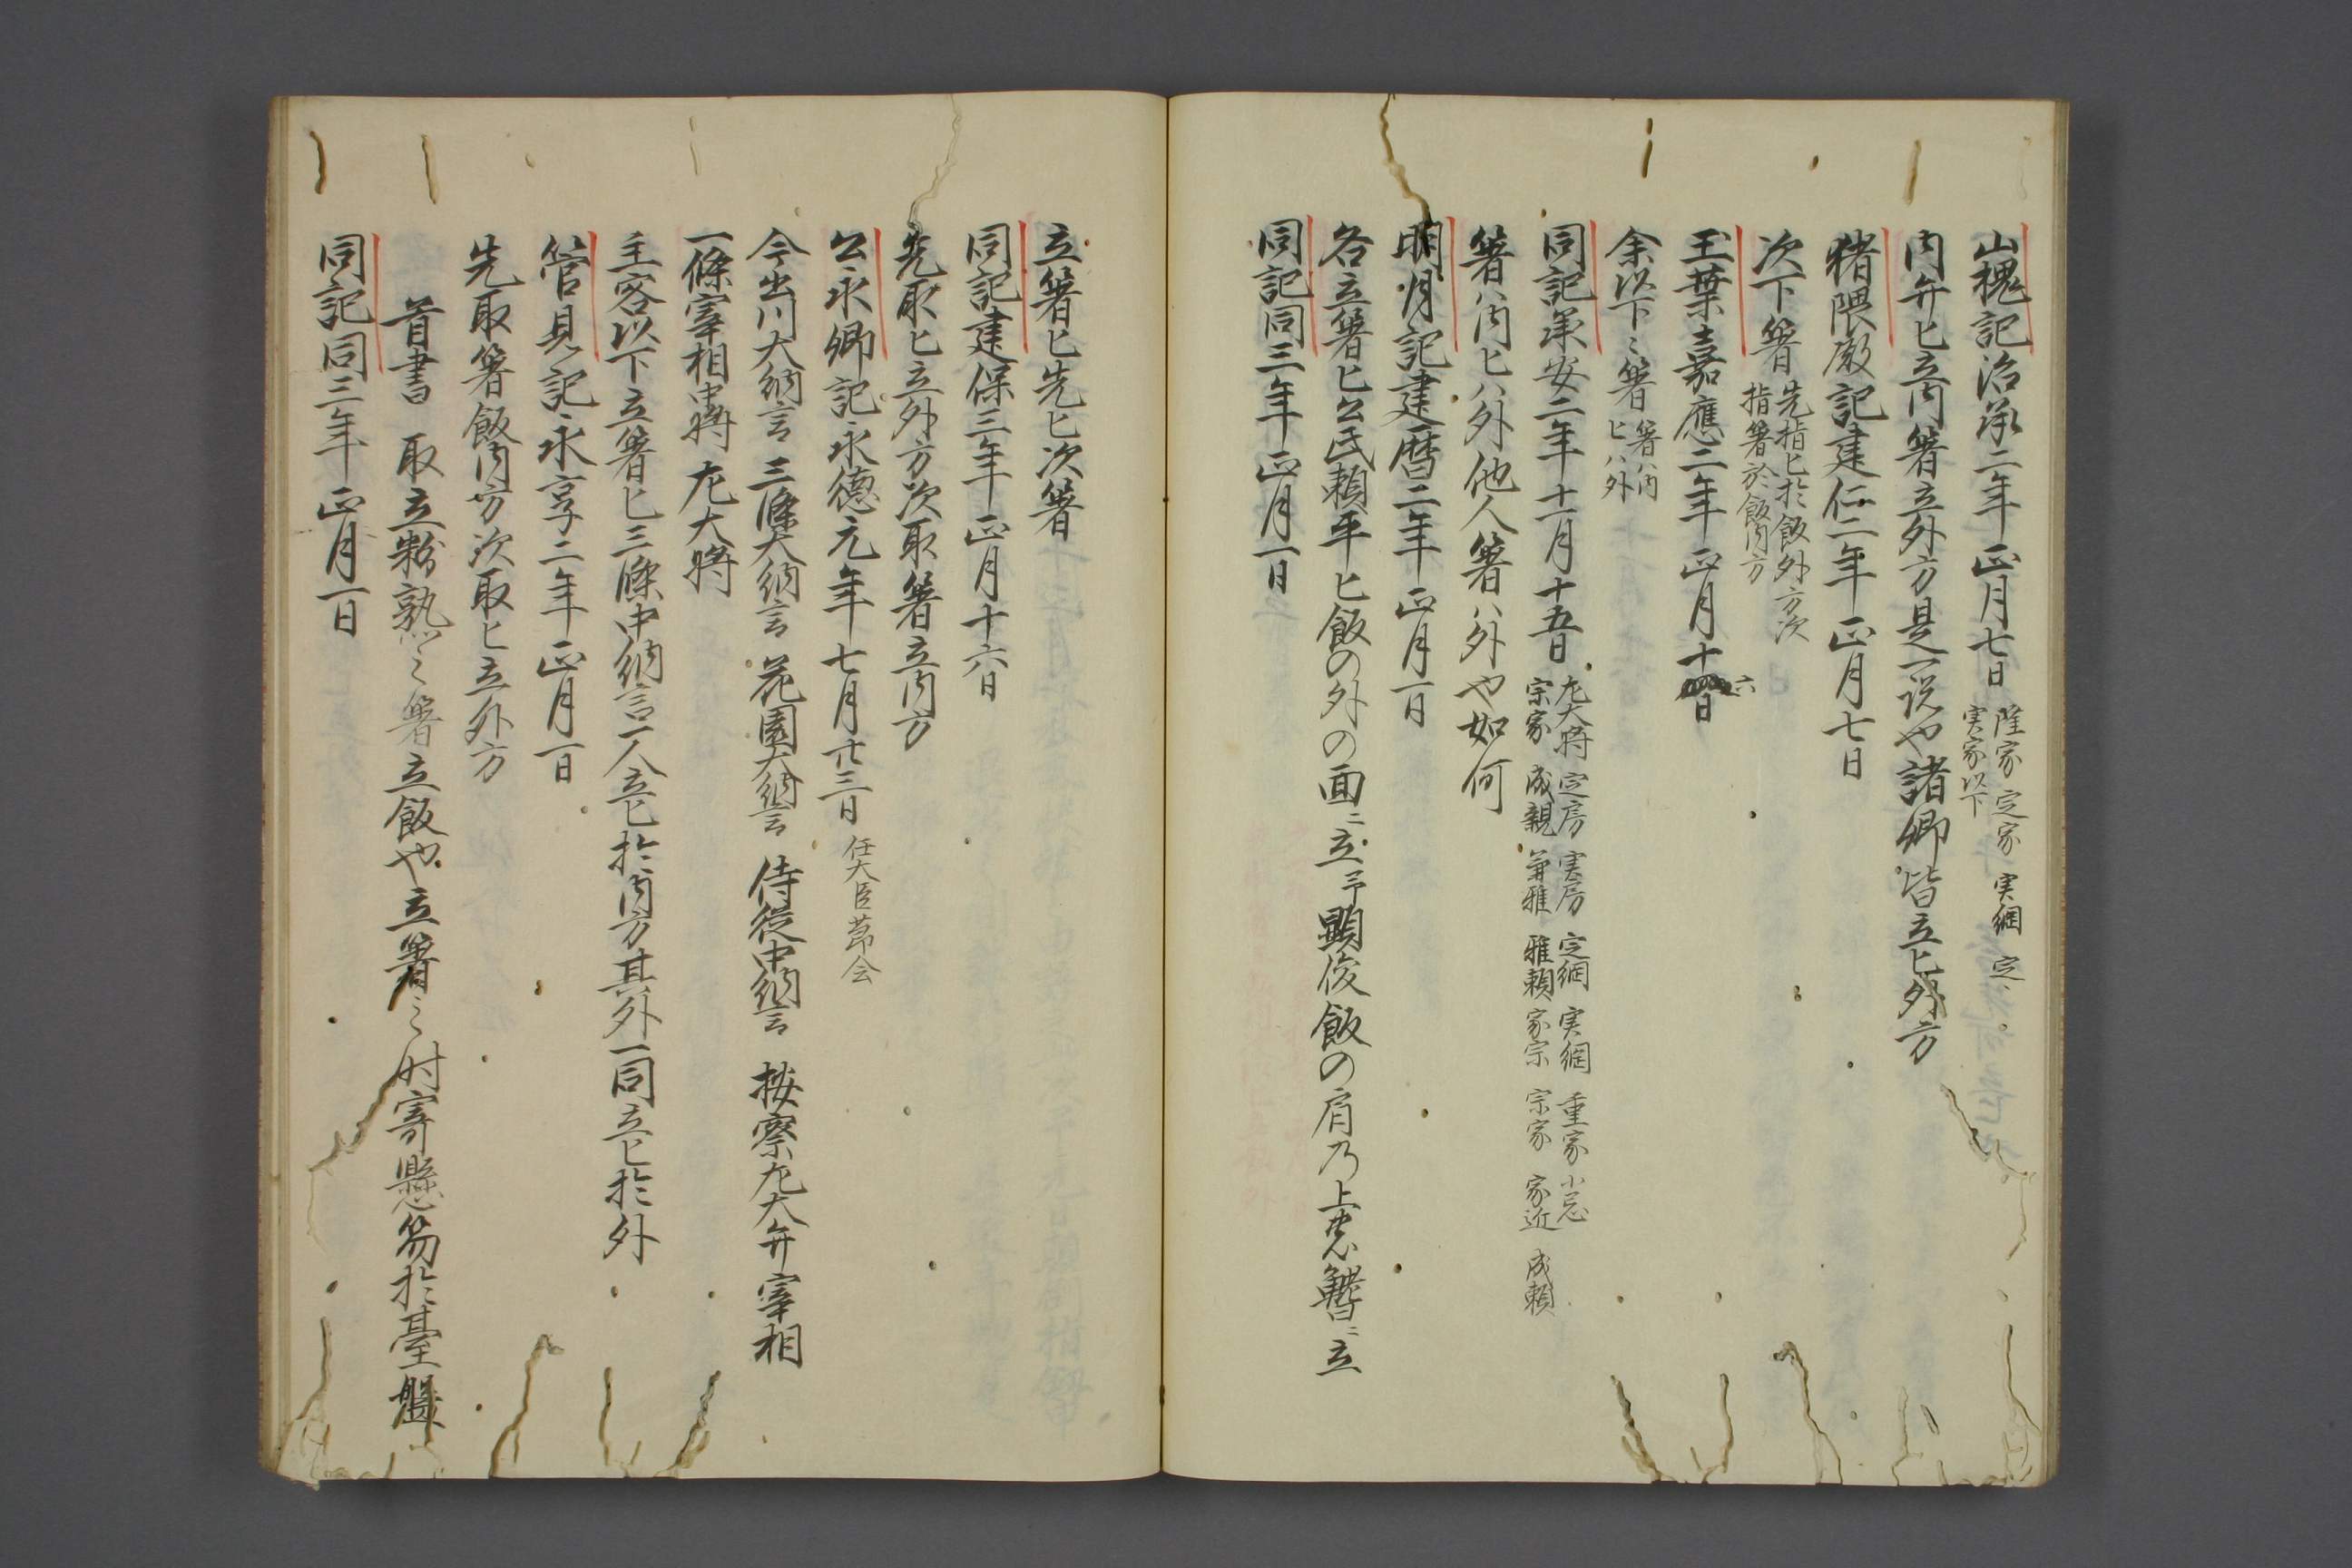 山槐記治承二年正月七日 隆家 定家 実綱 定、
実家以下
内弁匕立内箸立外方是一説や諸卿皆立匕外方
猪隈殿記建仁二年正月七日
次下箸 先指匕於飯外方次
指箸於飯内方
玉葉嘉應二年正月十六日
余以下々箸 箸ハ内
匕ハ外
同記承安二年十一月十五日 左大将 定房 実房 定綱 実綱 重家 小忌
宗家 成親 兼雅 雅頼 家宗 宗家 家近 成頼
箸ハ内匕ハ外他人箸ハ外や如何
明月記建暦二年正月一日
各立箸匕公氏頼平匕飯の外の面ニ立予顕俊飯の肩乃上ニ立
同記同三年正月一日
立箸匕先匕次箸
同記建保三年正月十六日
先取匕立外方次取箸立内方
公永卿記永徳元年七月廿三日 任大臣節会
今出川大納言 三條大納言 花園大納言 侍従中納言 按察左大弁宰相
一條宰相中将 左大将
主客以下立箸匕三條中納言一人立匕於内方其外一同立匕於外
管見記永享二年正月一日
先取箸飯内方次取匕立外方
首書 取立粉熟ツ之箸立飯や立箸之时寄懸笏於臺盤
同記同三年正月一日